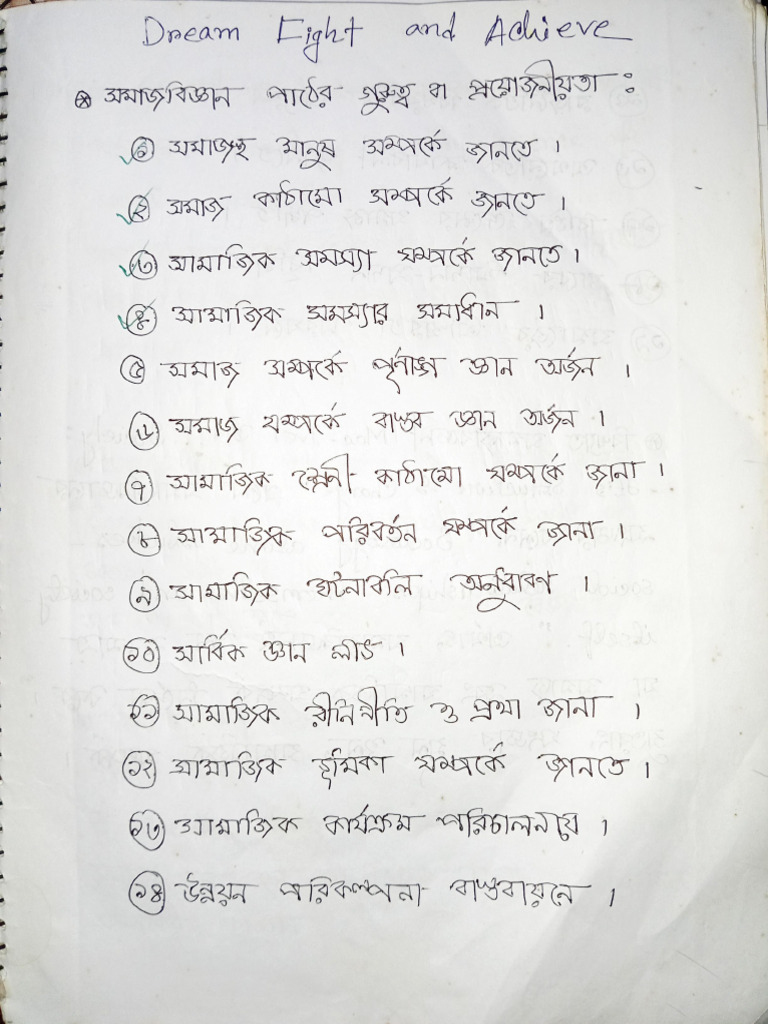 Dream Fight and Achieve
⊛ সমাজবিজ্ঞান পাঠের গুরুত্ব বা প্রয়োজনীয়তা :
১ সমাজস্থ মানুষ সম্পর্কে জানতে ।
২ সমাজ কাঠামো সম্পর্কে জানতে ।
৩ সামাজিক সমস্যা সম্পর্কে জানতে ।
৪ সামাজিক সমস্যার সমাধান ।
৫ সমাজ সম্পর্কে পূর্ণাঙ্গ জ্ঞান অর্জন ।
৬ সমাজ সম্পর্কে বাস্তব জ্ঞান অর্জন ।
৭ সামাজিক শ্রেনী কাঠামো সম্পর্কে জানা ।
৮ সামাজিক পরিবর্তন সম্পর্কে জানা ।
৯ সামাজিক ঘটনাবলি অনুধাবণ ।
১০ সার্বিক জ্ঞান লাভ ।
১১ সামাজিক রীতিনীতি ও প্রথা জানা ।
১২ সামাজিক ভূমিকা সম্পর্কে জানতে ।
১৩ সামাজিক কার্যক্রম পরিচালনায় ।
১৪ উন্নয়ন পরিকল্পনা বাস্তবায়নে ।